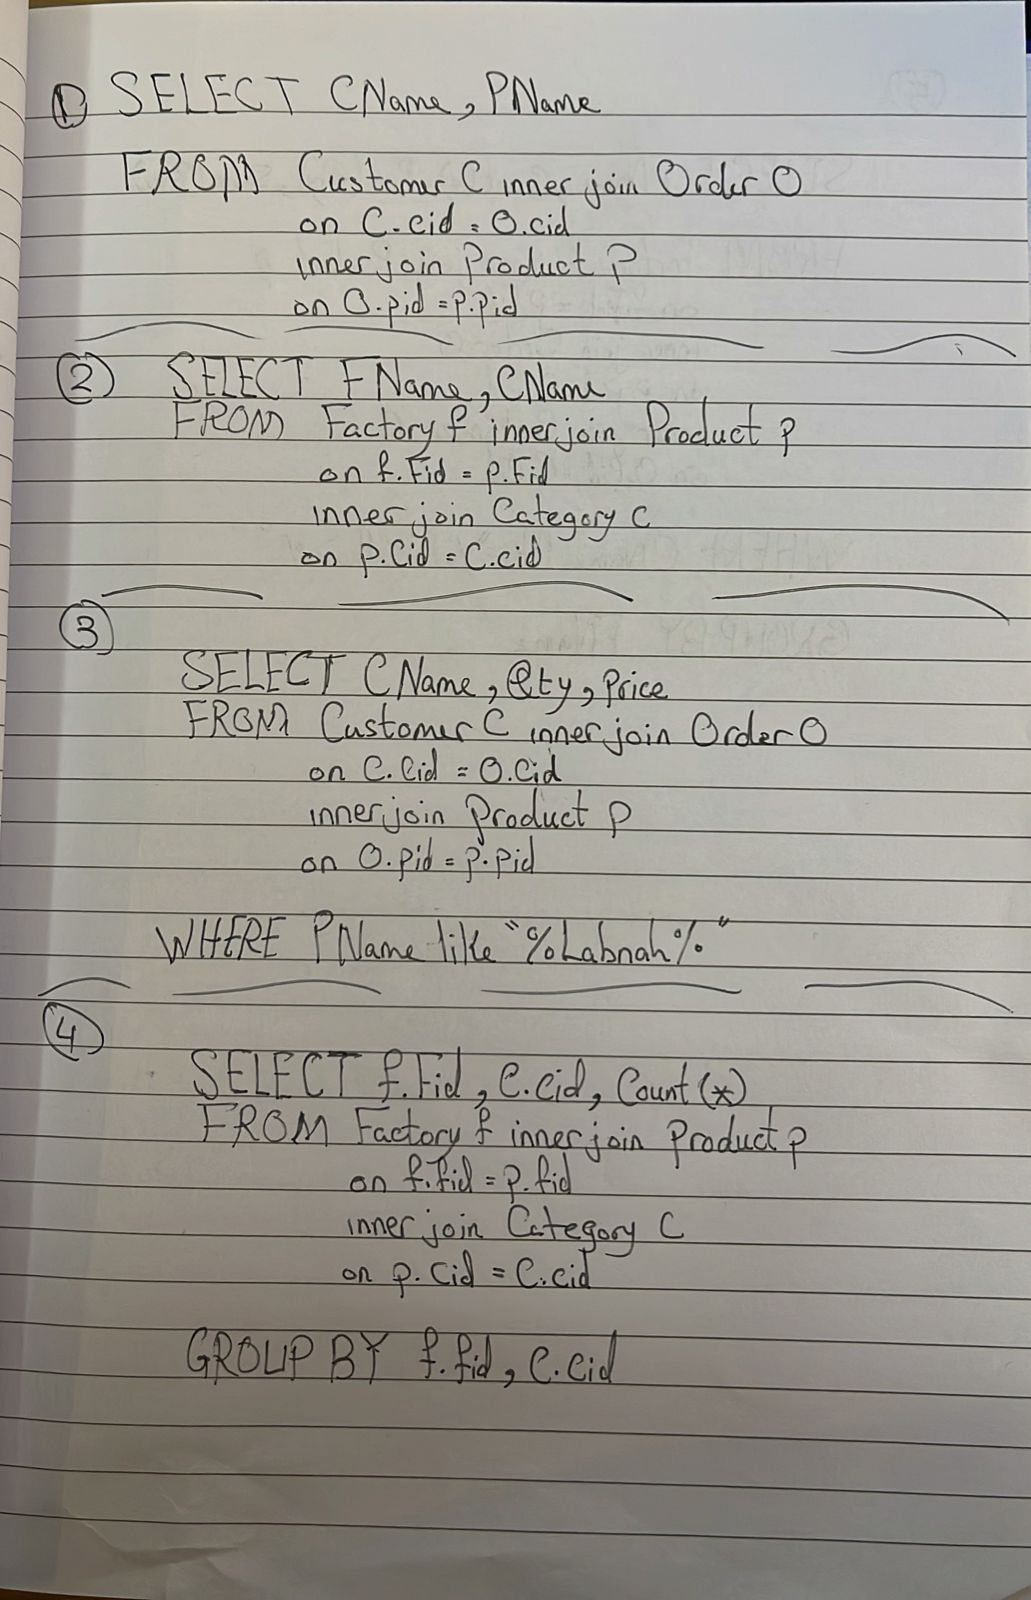 ① SELECT CName, PName
FROM Customer C inner join Order O
on C.cid = O.cid
inner join Product P
on O.pid = p.pid
② SELECT FName, CName
FROM Factory f inner join Product p
on f.Fid = p.Fid
inner join Category C
on p.Cid = C.cid
③
SELECT CName, Qty, Price
FROM Customer C inner join Order O
on C.Cid = O.Cid
inner join Product p
on O.pid = p.pid
WHERE PName like "%Labnah%"
④
SELECT f.Fid, C.cid, Count(*)
FROM Factory f inner join Product p
on f.fid = p.fid
inner join Category C
on p.Cid = C.cid
GROUP BY f.fid, C.cid